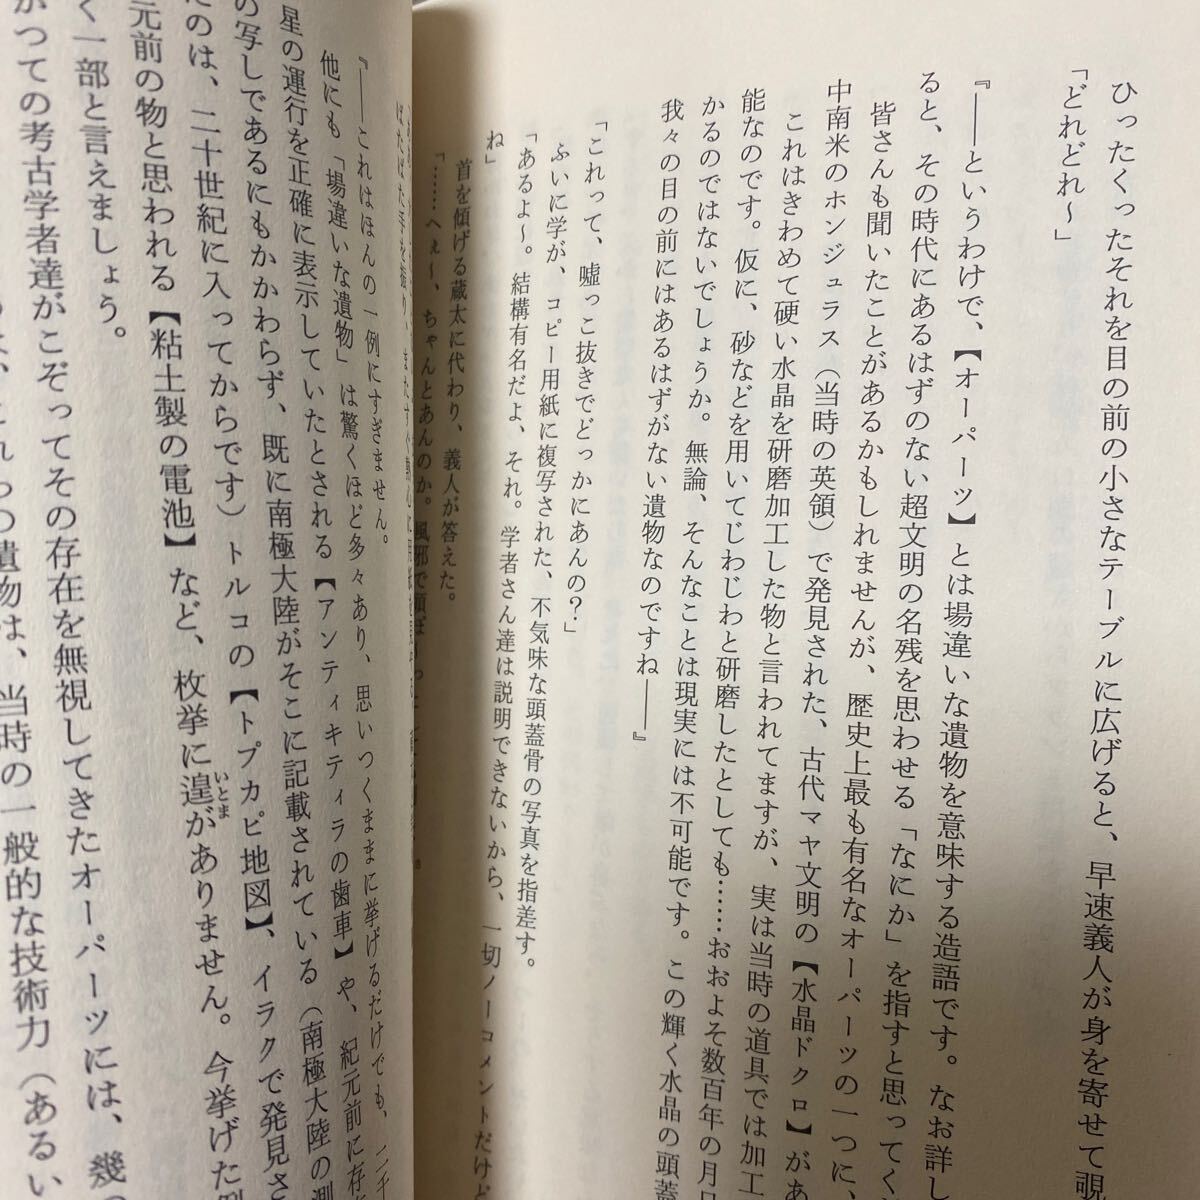 ひったくったそれを目の前の小さなテーブルに広げると、早速義人が身を寄せて覗
「どれどれ〜」
『――というわけで、【オーパーツ】とは場違いな遺物を意味する造語です。なお詳し
ると、その時代にあるはずのない超文明の名残を思わせる「なにか」を指すと思ってく
皆さんも聞いたことがあるかもしれませんが、歴史上最も有名なオーパーツの一つに、
中南米のホンジュラス（当時の英領）で発見された、古代マヤ文明の【水晶ドクロ】があ
これはきわめて硬い水晶を研磨加工した物と言われてますが、実は当時の道具では加工
能なのです。仮に、砂などを用いてじわじわと研磨したとしても……おおよそ数百年の月日
かるのではないでしょうか。無論、そんなことは現実には不可能です。この輝く水晶の頭蓋
我々の目の前にはあるはずがない遺物なのですね――』
「これって、嘘っこ抜きでどっかにあんの？」
ふいに学が、コピー用紙に複写された、不気味な頭蓋骨の写真を指差す。
「あるよ〜。結構有名だよ、それ。学者さん達は説明できないから、一切ノーコメントだけど
ね」
首を傾げる蔵太に代わり、義人が答えた。
「……へぇ〜、ちゃんとあんのか。風邪で頭ぼ
『――これはほんの一例にすぎません。
他にも「場違いな遺物」は驚くほど多々あり、思いつくままに挙げるだけでも、二千
星の運行を正確に表示していたとされる【アンティキティラの歯車】や、紀元前に存在
の写しであるにもかかわらず、既に南極大陸がそこに記載されている（南極大陸の測
たのは、二十世紀に入ってからです）トルコの【トプカピ地図】、イラクで発見さ
元前の物と思われる【粘土製の電池】など、枚挙に遑がありません。今挙げた例
く一部と言えましょう。
かつての考古学者達がこぞってその存在を無視してきたオーパーツには、幾つ
これらの遺物は、当時の一般的な技術力（あるい